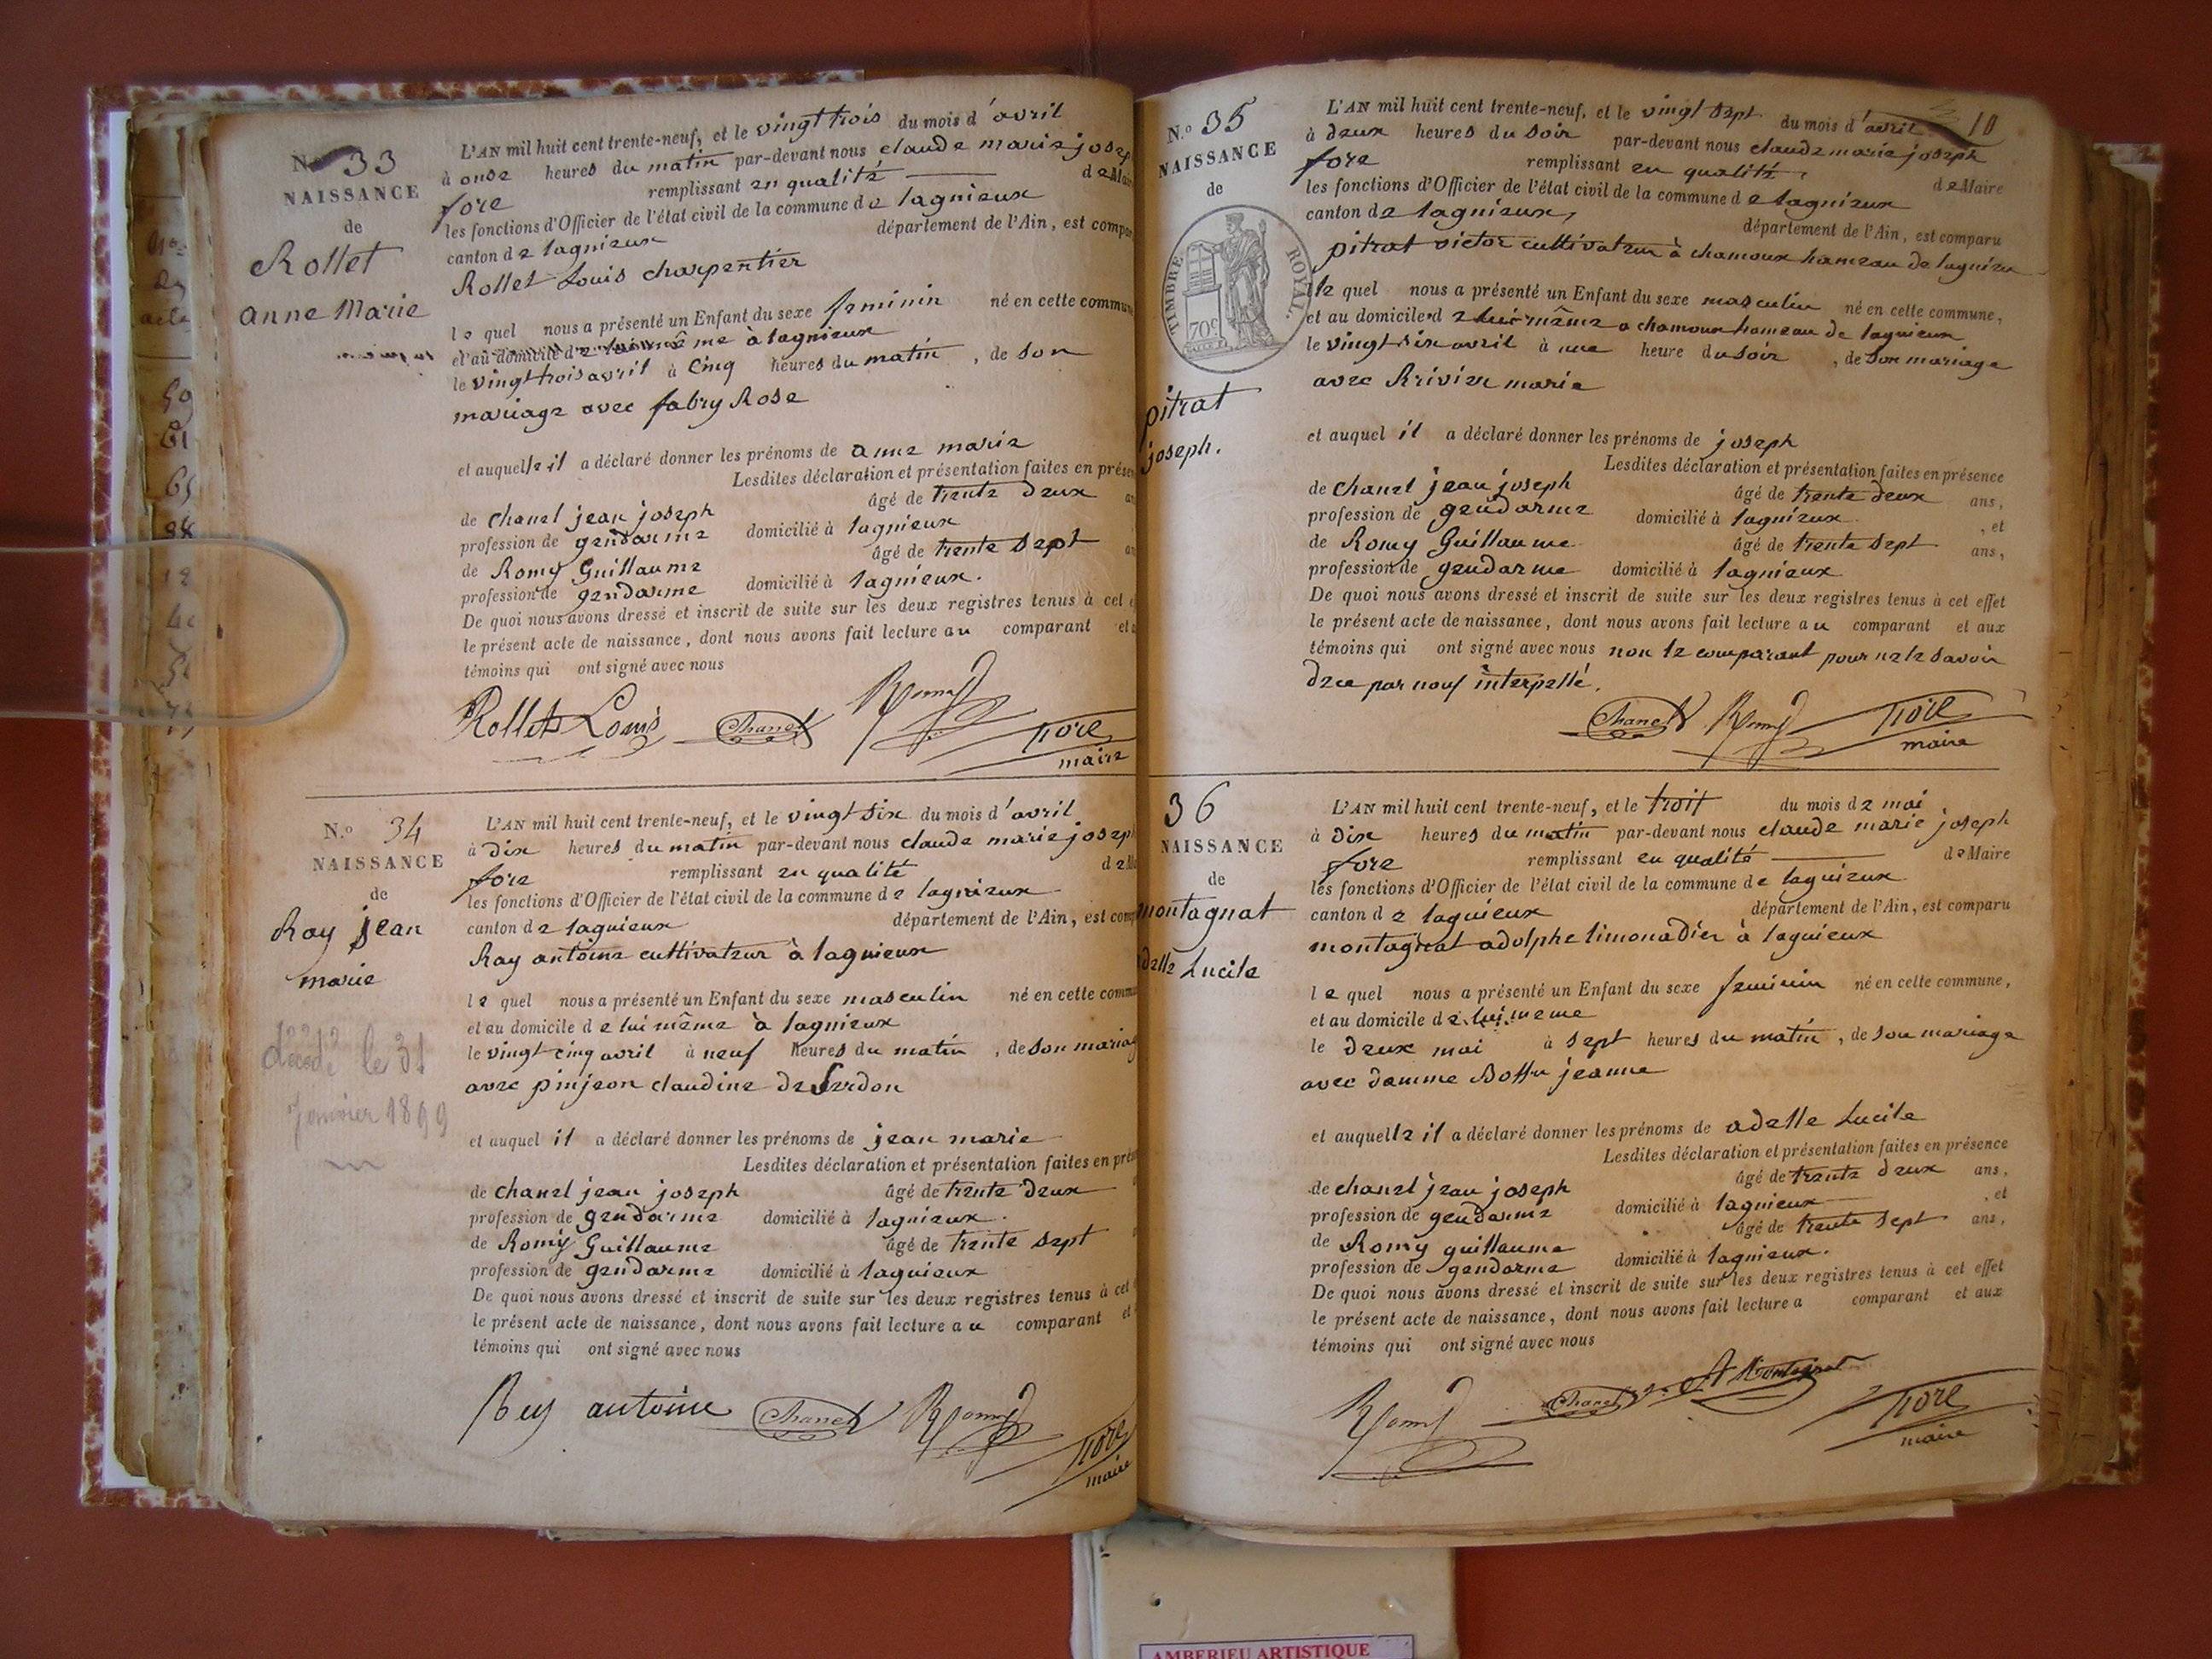 N.o 33
NAISSANCE
de
Rollet
anne Marie
L'AN mil huit cent trente-neuf, et le vingt trois du mois d'avril
à onse heures du matin par-devant nous claude marie josep
fore remplissant en qualité de Mai
les fonctions d'Officier de l'état civil de la commune de lagnieux
canton de lagnieux département de l'Ain, est compar
Rollet Louis charpentier
le quel nous a présenté un Enfant du sexe feminin né en cette commun
et au domicile de lui même à lagnieux
le vingt trois avril à cinq heures du matin, de son
mariage avec fabry Rose
et auquelle il a déclaré donner les prénoms de anne marie
Lesdites déclaration et présentation faites en présen
de chanel jean joseph âgé de trente deux an
profession de gendarme domicilié à lagnieux
de Romy Guillaume âgé de trente sept an
profession de gendarme domicilié à lagnieux.
De quoi nous avons dressé et inscrit de suite sur les deux registres tenus à cet e
le présent acte de naissance, dont nous avons fait lecture au comparant et a
témoins qui ont signé avec nous
Rollet Louis Chanel Romy fore
maire
N.o 34
NAISSANCE
de
Ray jean
marie
décédé le 31
janvier 1899
L'AN mil huit cent trente-neuf, et le vingt six du mois d'avril
à dix heures du matin par-devant nous claude marie josep
fore remplissant en qualité de Ma
les fonctions d'Officier de l'état civil de la commune de lagnieux
canton de lagnieux département de l'Ain, est comp
Ray antoine cultivateur à lagnieux
le quel nous a présenté un Enfant du sexe masculin né en cette commu
et au domicile de lui même à lagnieux
le vingt cinq avril à neuf heures du matin, de son mariag
avec pinjeon claudine de Serdon
et auquel il a déclaré donner les prénoms de jean marie
Lesdites déclaration et présentation faites en prés
de chanel jean joseph âgé de trente deux
profession de gendarme domicilié à lagnieux.
de Romy Guillaume âgé de trente sept
profession de gendarme domicilié à lagnieux
De quoi nous avons dressé et inscrit de suite sur les deux registres tenus à cet
le présent acte de naissance, dont nous avons fait lecture au comparant et
témoins qui ont signé avec nous
Rey antoine Chanel Romy fore
maire
10
N.o 35
NAISSANCE
de
TIMBRE ROYAL.
70c
pitrat
joseph.
L'AN mil huit cent trente-neuf, et le vingt sept du mois d'avril
à deux heures du soir par-devant nous claude marie joseph
fore remplissant en qualité de Maire
les fonctions d'Officier de l'état civil de la commune de lagnieux
canton de lagnieux, département de l'Ain, est comparu
pitrat victor cultivateur à chamoux hameau de lagnieu
le quel nous a présenté un Enfant du sexe masculin né en cette commune,
et au domicile de lui même a chamoux hameau de lagnieux
le vingt six avril à une heure du soir, de son mariage
avec Rrivier marie
et auquel il a déclaré donner les prénoms de joseph
Lesdites déclaration et présentation faites en présence
de chanel jean joseph âgé de trente deux ans,
profession de gendarme domicilié à lagnieux, et
de Romy Guillaume âgé de trente sept ans,
profession de gendarme domicilié à lagnieux
De quoi nous avons dressé et inscrit de suite sur les deux registres tenus à cet effet
le présent acte de naissance, dont nous avons fait lecture au comparant et aux
témoins qui ont signé avec nous non le comparant pour ne le savoir
de ce par nous interpellé.
Chanel Romy fore
maire
36
NAISSANCE
de
montagnat
adelle Lucile
L'AN mil huit cent trente-neuf, et le trois du mois de mai
à dix heures du matin par-devant nous claude marie joseph
fore remplissant en qualité de Maire
les fonctions d'Officier de l'état civil de la commune de lagnieux
canton de lagnieux département de l'Ain, est comparu
montagnat adolphe limonadier à lagnieux
le quel nous a présenté un Enfant du sexe feminin né en cette commune,
et au domicile de lui meme
le deux mai à sept heures du matin, de son mariage
avec damme Bottu jeanne
et auquelle il a déclaré donner les prénoms de adelle Lucile
Lesdites déclaration et présentation faites en présence
de chanel jean joseph âgé de trente deux ans,
profession de gendarme domicilié à lagnieux, et
de Romy guillaume âgé de trente sept ans,
profession de gendarme domicilié à lagnieux.
De quoi nous avons dressé et inscrit de suite sur les deux registres tenus à cet effet
le présent acte de naissance, dont nous avons fait lecture a comparant et aux
témoins qui ont signé avec nous
Romy Chanel A Montagnat fore
maire
AMBERIEU ARTISTIQUE